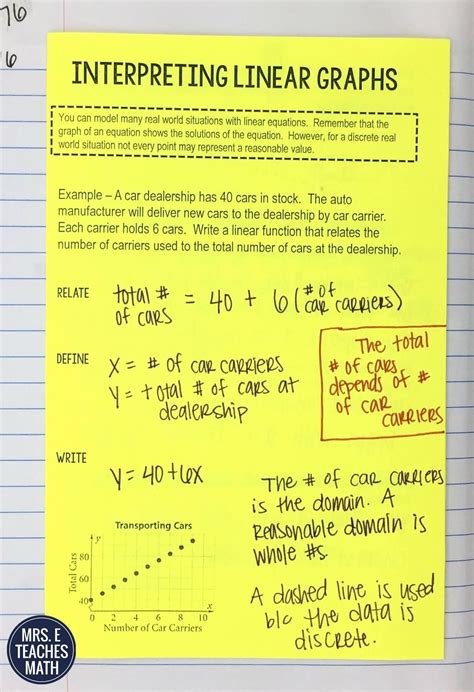 76
6
INTERPRETING LINEAR GRAPHS
You can model many real world situations with linear equations. Remember that the
graph of an equation shows the solutions of the equation. However, for a discrete real
world situation not every point may represent a reasonable value.
Example – A car dealership has 40 cars in stock. The auto
manufacturer will deliver new cars to the dealership by car carrier.
Each carrier holds 6 cars. Write a linear function that relates the
number of carriers used to the total number of cars at the dealership.
RELATE
total # of cars = 40 + 6 (# of car carriers)
The total
# of cars
depends of #
of car
carriers
DEFINE
X = # of car carriers
Y = total # of cars at
dealership
WRITE
y = 40 + 6x
The # of car carriers
is the domain. A
reasonable domain is
whole #s.
A dashed line is used
b/c the data is
discrete.
Transporting Cars
y
Total Cars
80
60
40
0 2 4 6 8 10 x
Number of Car Carriers
MRS. E
TEACHES
MATH